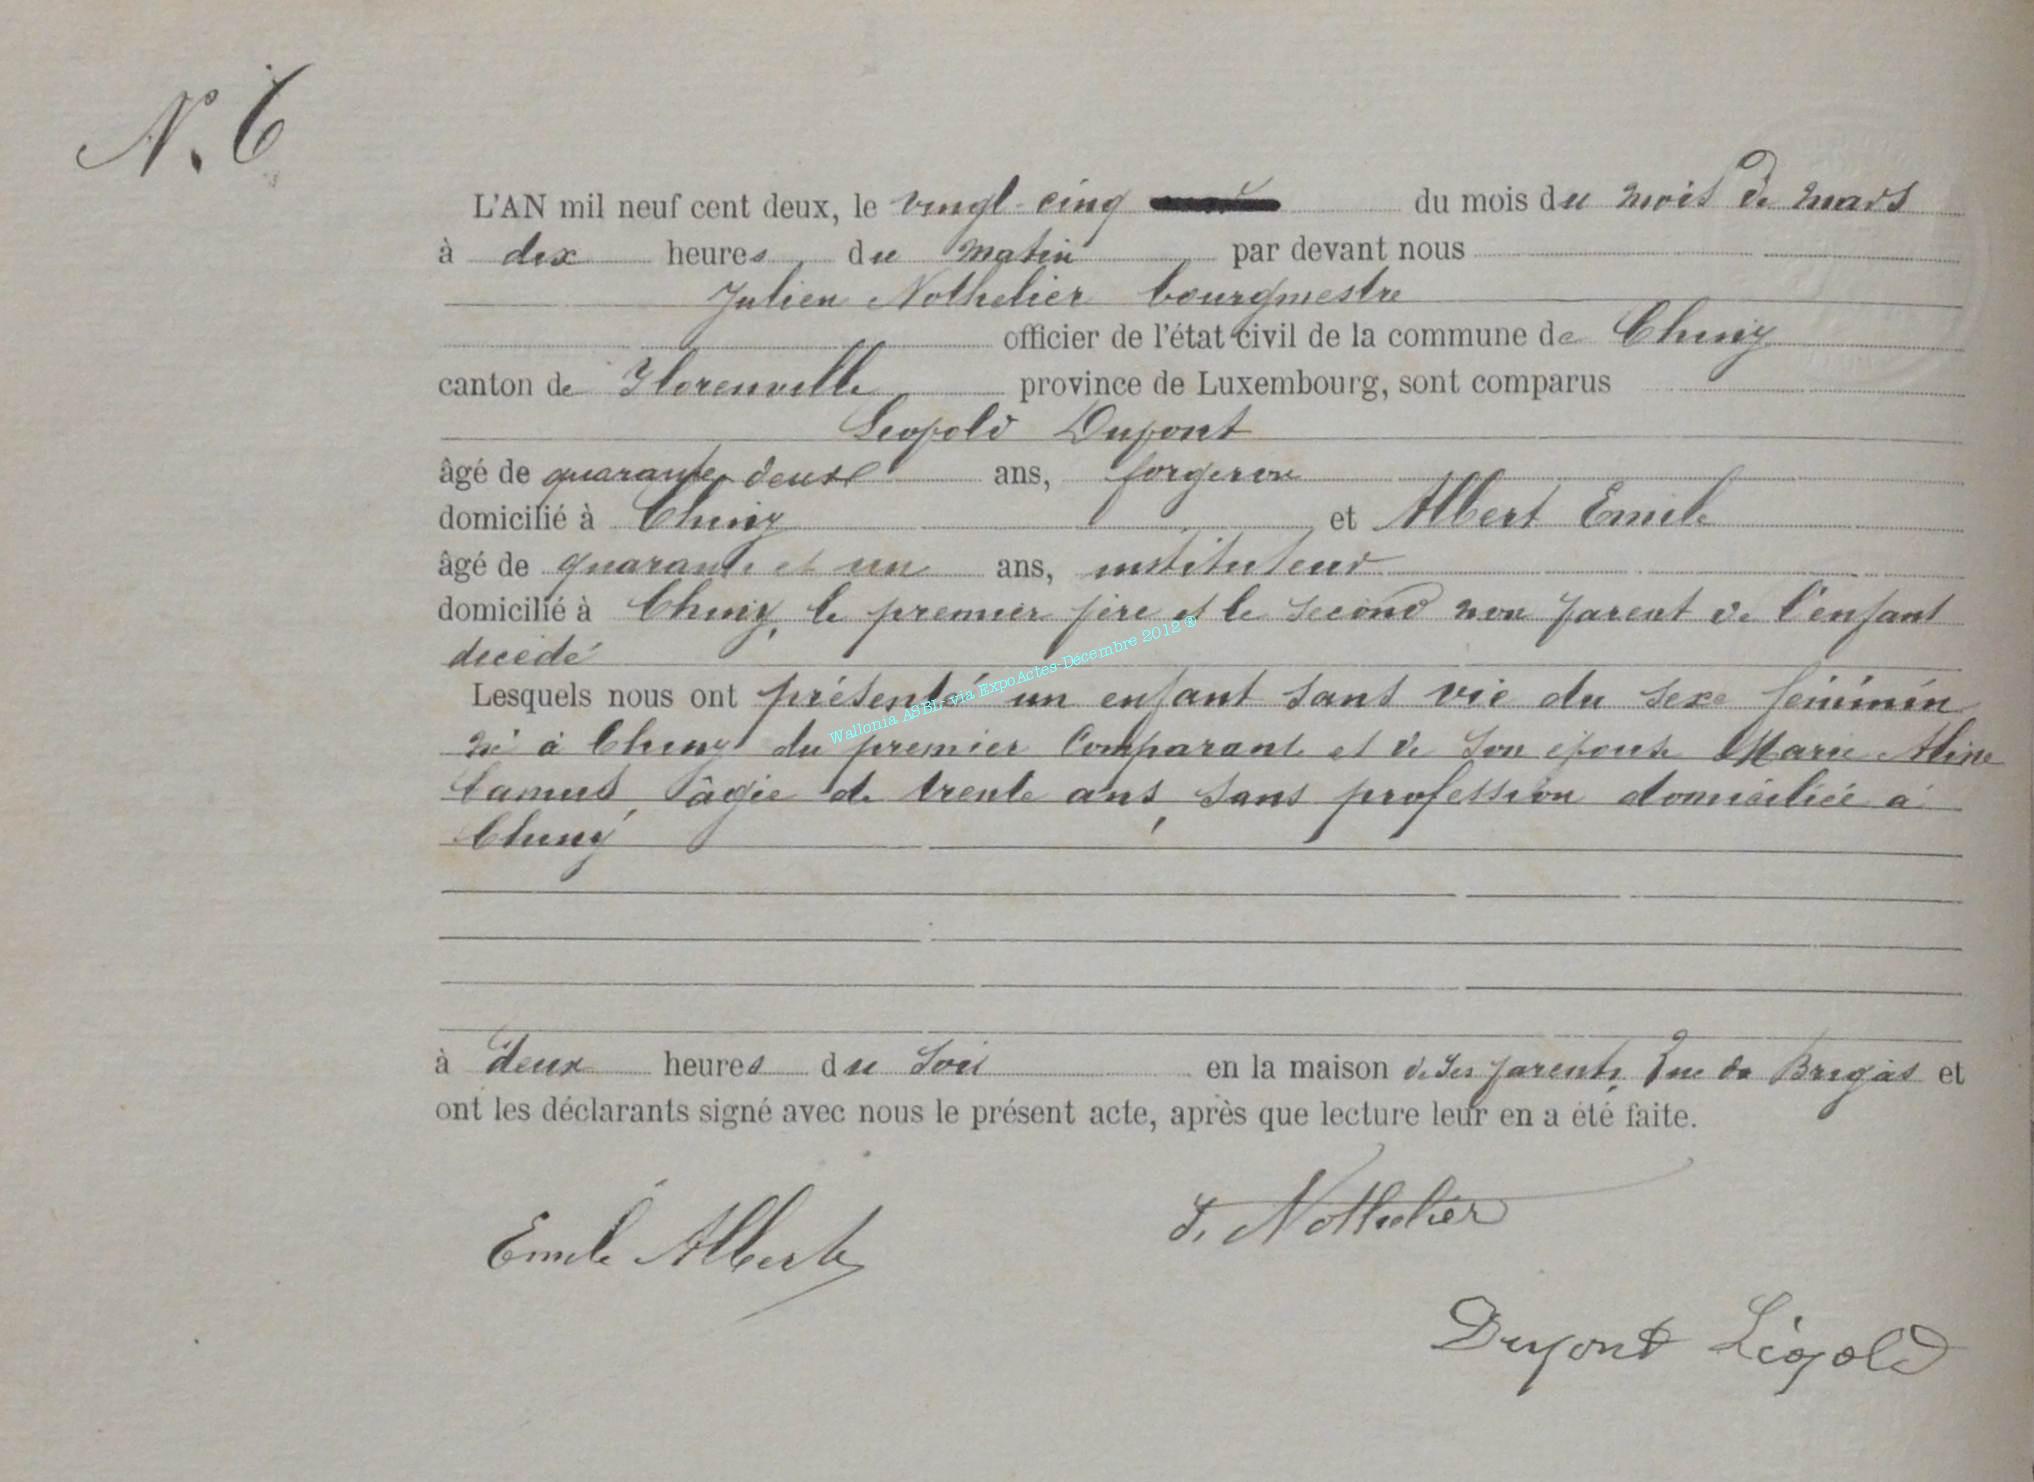 N. 6
L'AN mil neuf cent deux, le vingt-cinq du mois du mois de mars
à dix heures du matin par devant nous
Julien Nothelier bourgmestre
officier de l'état civil de la commune de Chiny
canton de Florenville province de Luxembourg, sont comparus
Léopold Dupont
âgé de quarante deux ans, forgeron
domicilié à Chiny et Albert Emile
âgé de quarante et un ans, instituteur
domicilié à Chiny, le premier père et le second non parent de l'enfant
décédé
Lesquels nous ont présenté un enfant sans vie du sexe féminin
né à Chiny du premier comparant et de son épouse Marie Aline
Camus, âgée de trente ans, sans profession domiciliée à
Chiny
à deux heures du soir en la maison de ses parents, rue du Bregas et
ont les déclarants signé avec nous le présent acte, après que lecture leur en a été faite.
Emile Albert
J. Nothelier
Dupont Léopold
Wallonia ASBL-via ExpoActes-Décembre 2012 ®